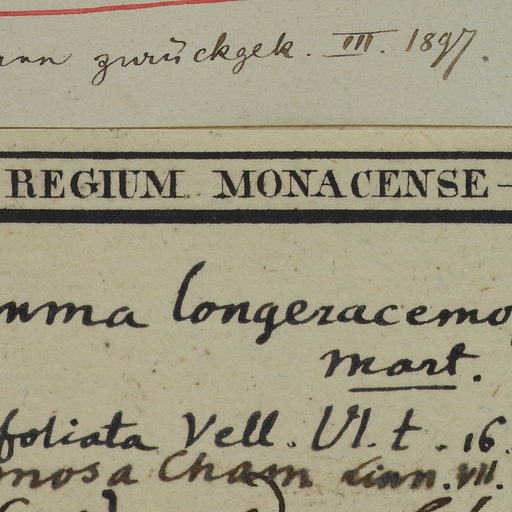 zurückgek. III. 1897.
REGIUM MONACENSE
longeracemo
mart.
foliata Vell. Vl. t. 16.
mosa Cham Linn. VII.